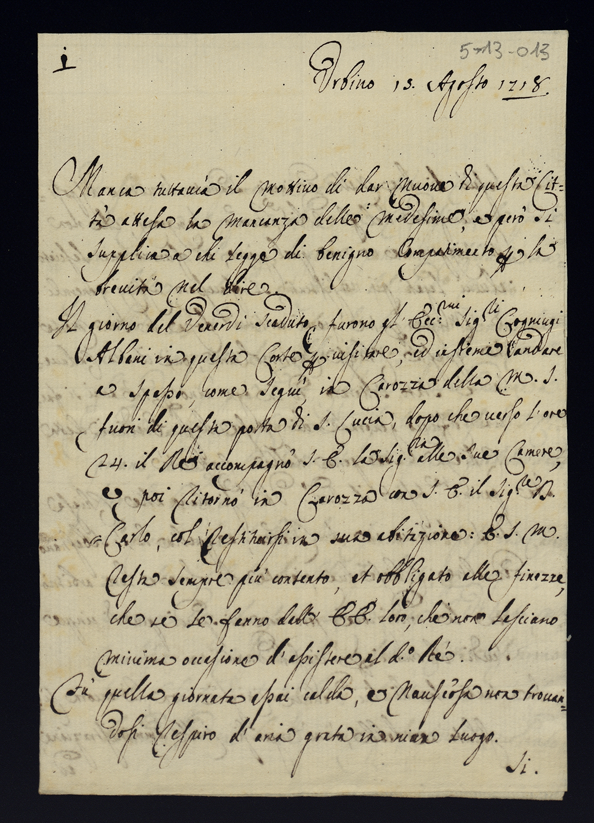 5-13-013
1
Urbino 13. Agosto 1718.
Manca tuttavia il mottivo di dar Nuove di questa Cit=
tà attesa la mancanza delle medesime, e però si
supplica a chi legge di benigno Compatimento p la
brevità nel dire.
Il giorno del Venerdì scaduto, furono gl' Ecc.mi Sig.li Cogniugi
Albani in questa Corte p visitare, ed insieme andare
a spasso, come seguì, in Carozza della M. S.
fuori di questa porta di S. Lucia, dopo che verso l'ore
24. il Rè accompagnò S. E. la Sig.ra alle Sue Camere,
e poi ritornò in Carozza con S. E. il Sig.re D.
Carlo, col restituirsi in sua abitizione: E S. M.
resta sempre più contento, et obbligato alle finezze,
che se le fanno dall' EE. loro, che non lasciano
minima occasione d'assistere al d.o Rè.
Fù quella giornata assai calda, e Nauseosa non trovan=
dosi respiro d'aria grata in niun luogo.
Si.